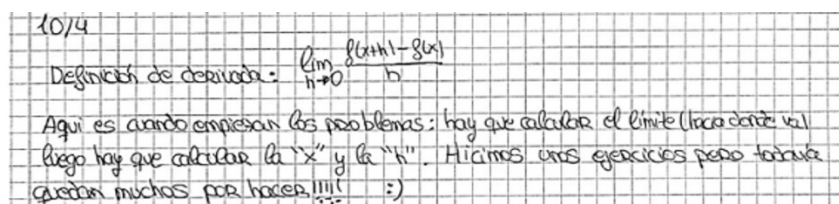 10/4
Definición de derivada: lim h→0 f(x+h)-f(x) / h
Aqui es cuando empiezan los problemas: hay que calcular el limite (hacia donde va)
luego hay que calcular la "x" y la "h". Hicimos unos ejercicios pero todavía
quedan muchos por hacer!!!!! :)